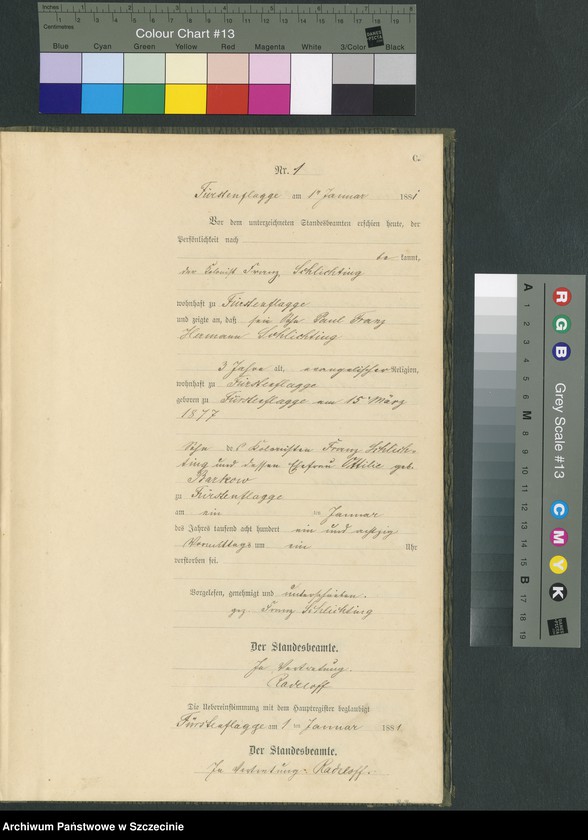 Inches
Centimetres
Colour Chart #13
Blue Cyan Green Yellow Red Magenta White 3/Color Black
C.
Nr. 1
Fürstenflagge am 1ten Januar 1881
Vor dem unterzeichneten Standesbeamten erschien heute, der
Persönlichkeit nach
be kannt,
der Kolonist Franz Schlichting
wohnhaft zu Fürstenflagge
und zeigte an, daß sein Sohn Paul Franz
Hermann Schlichting
3 Jahre alt, evangelischer Religion,
wohnhaft zu Fürstenflagge
geboren zu Fürstenflagge am 15 März
1877
Sohn des Kolonisten Franz Schlich-
ting und dessen Ehefrau Ottilie geb.
Barkow
zu Fürstenflagge
am ein ten Januar
des Jahres tausend acht hundert ein und achtzig
Vormittags um ein Uhr
verstorben sei.
Vorgelesen, genehmigt und unterschrieben.
gez. Franz Schlichting
Der Standesbeamte.
In Vertretung.
Radeloff
Die Uebereinstimmung mit dem Hauptregister beglaubigt
Fürstenflagge am 1 ten Januar 1881
Der Standesbeamte.
In Vertretung. Radeloff.
R G B
Grey Scale #13
C M Y K
A 1 2 3 4 5 6 M 8 9 10 11 12 13 14 15 B 17 18 19
Archiwum Państwowe w Szczecinie